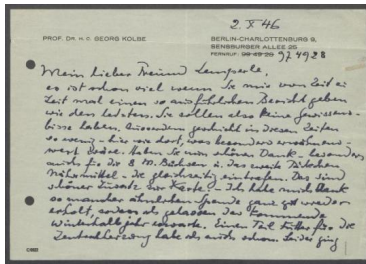 2. X 46
PROF. DR. H. C. GEORG KOLBE
BERLIN-CHARLOTTENBURG 9,
SENSBURGER ALLEE 25
FERNRUF: 99 49 25 97 49 28
Mein lieber Freund Lemperle,
es ist schon viel wenn Sie mir von Zeit zu
Zeit mal einen so ausführlichen Bericht geben
wie den letzten. Sie sollen also keine Gewissens-
bisse haben. Ausserdem geschieht in diesen Zeiten
so wenig - hier wie dort, was besonders
wert wäre. Haben Sie nun schönen Dank - besonders
auch für die 8 M. Büchsen u. das zweite Tütchen
Nährmittel - die gleichzeitig eintrafen. Das sind
schöner Zusatz zur Karte. - Ich habe mich Dank
so mancher ähnlichen Spende ganz gut wieder
erholt, sodass ich gelassen das kommende
Winterhalbjahr erwarte. Einen Teil für die
Zentralheizung habe ich auch schon. Leider ging